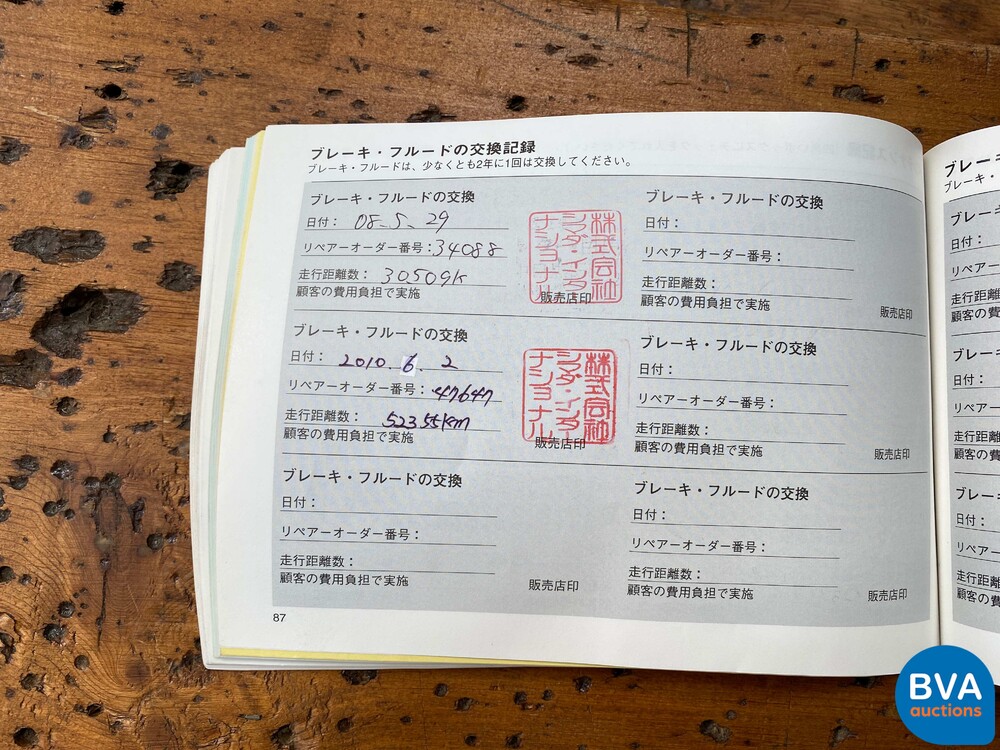 ブレーキ・フルードの交換記録
ブレーキ・フルードは、少なくとも2年に1回は交換してください。
ブレーキ・フルードの交換
日付： 08-5-29
リペアーオーダー番号：34088
走行距離数： 30509K
顧客の費用負担で実施
株式会社
シマダ・インター
ナショナル
販売店印
ブレーキ・フルードの交換
日付： 2010. 6. 2
リペアーオーダー番号： 47647
走行距離数： 52355km
顧客の費用負担で実施
株式会社
シマダ・インター
ナショナル
販売店印
ブレーキ・フルードの交換
日付：
リペアーオーダー番号：
走行距離数：
顧客の費用負担で実施
販売店印
87
ブレーキ・フルードの交換
日付：
リペアーオーダー番号：
走行距離数：
顧客の費用負担で実施
販売店印
ブレーキ・フルードの交換
日付：
リペアーオーダー番号：
走行距離数：
顧客の費用負担で実施
販売店印
ブレーキ・フルードの交換
日付：
リペアーオーダー番号：
走行距離数：
顧客の費用負担で実施
販売店印
ブレーキ
ブレーキ・
ブレー
日付：
リペアー
走行距離
顧客の費
ブレー
日付：
リペアー
走行距離
顧客の費
ブレー
日付：
リペアー
走行距離
顧客の費
BVA
auctions